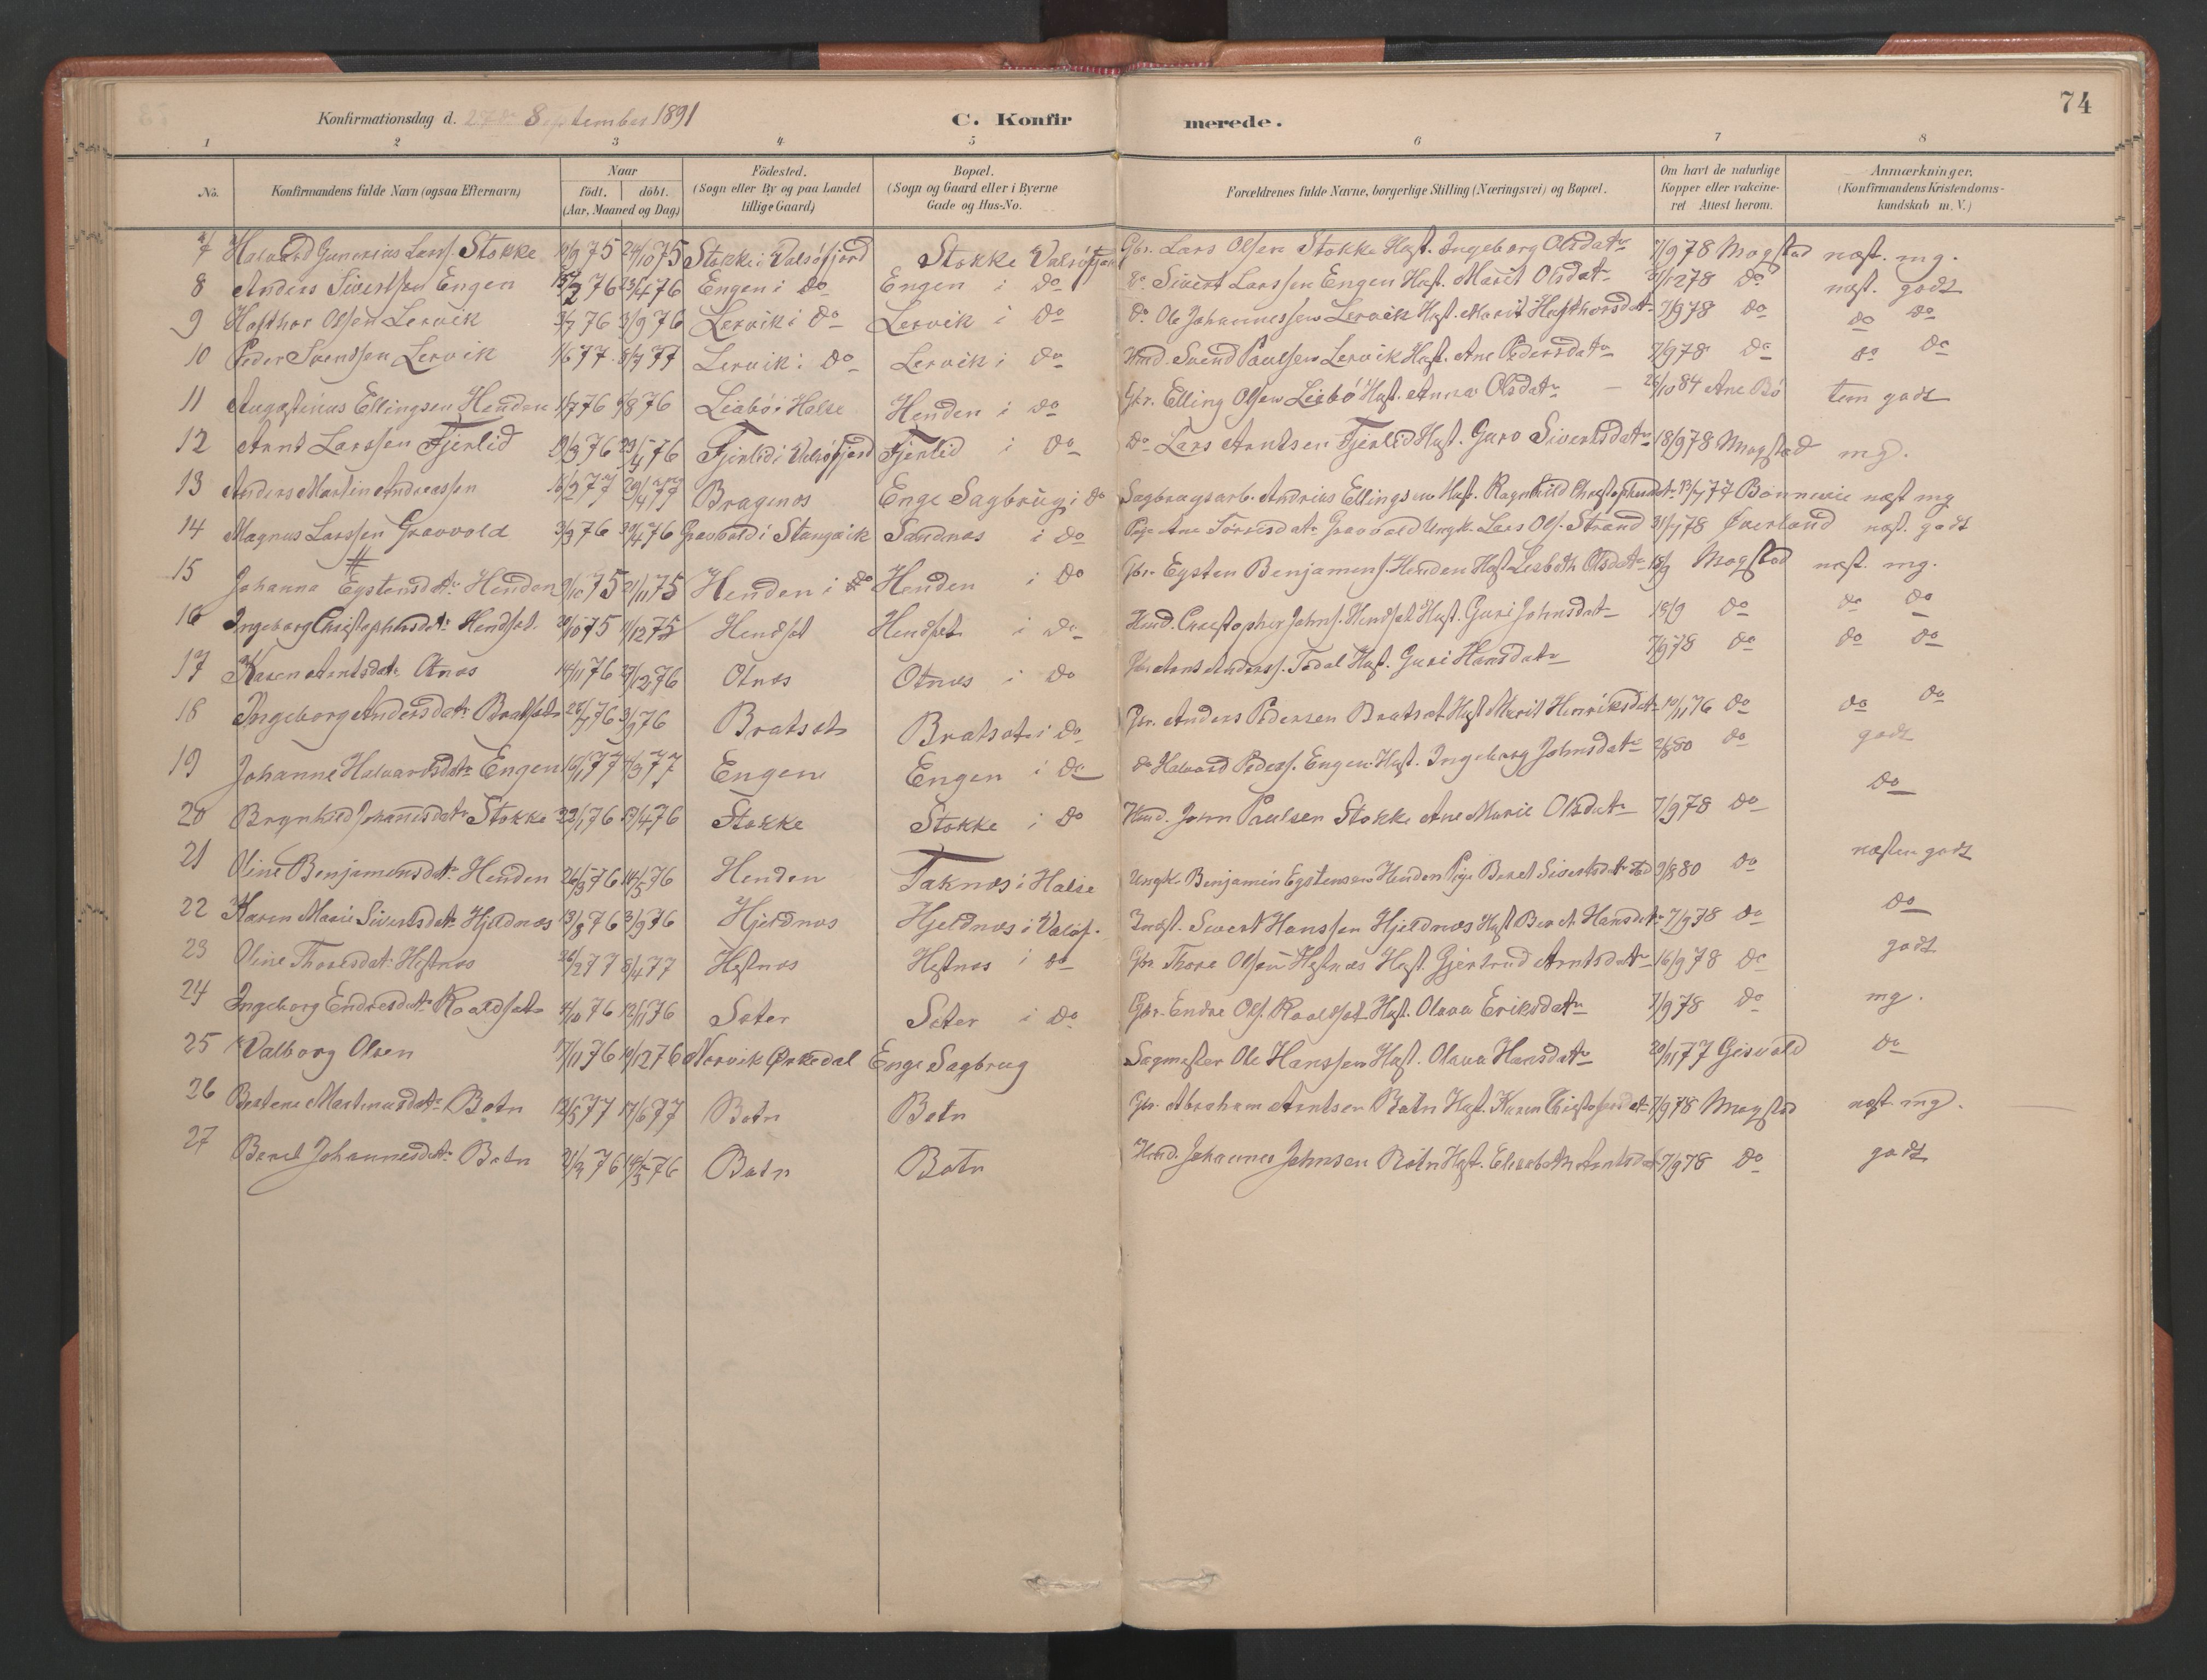 74
Konfirmationsdag d. September 1891
C. Konfirmerede.
1 2 3 4 5 6 7 8
No. Konfirmandens fulde Navn (ogsaa Efternavn) Naar födt. döbt. (Aar, Maaned og Dag) Födested. (Sogn eller By og paa Landet tillige Gaard) Bopæl. (Sogn og Gaard eller i Byerne Gade og Hus-No. Forældrenes fulde Navne, borgerlige Stilling (Næringsvei) og Bopæl. Om havt de naturlige Kopper eller vaccineret Attest herom. Anmærkninger. (Konfirmandens Kristendomskundskab m. V.)
7 Halvard Gunnerius Larss. Stokke /9 75 24/10 75 Stokke i Valsöfjord Stokke Valsöfjord Gbr. Lars Olsen Stokke Hust. Ingeborg Olsdatr 7/9 78 Mogstad næst. mg.
8 Anders Sivertsen Engen /2 76 23/4 76 Engen i do Engen i do do Sivert Larssen Engen Hust. Marit Olsdatr /12 78 do næst. godt
9 Hafthor Olsen Lervik 3/7 76 3/9 76 Lervik i do Lervik i do do Ole Johannessen Lervik Hust. Marit Hafthorsdatr 7/9 78 do do do
10 Peder Svendsen Lervik 1/6 77 8/7 77 Lervik i do Lervik i do Hmd. Svend Paulsen Lervik Hust. Ane Pedersdatr 7/9 78 do do do
11 Augustinus Ellingsen Henden 1/7 76 /8 76 Liabö i Halse Henden i do Gbr. Elling Olsen Liabö Hust. Anna Olsdatr 26/10 84 Ane Bö tem godt
12 Arnt Larssen Fjerlid /3 76 23/4 76 Fjerlid i Valsöfjord Fjerlid i do do Lars Arntsen Fjerlid Hust. Guro Sivertsdatr 18/9 78 Mogstad mg.
13 Anders Martin Andreassen /2 77 29/4 77 Bragenes Enge Sagbrug i do Sagbrugsarb. Andrias Ellingsen Hust. Ragnhild Christophersdatr 13/7 77 Bonnevie næst mg
14 Magnus Larssen Gravvold 3/3 76 30/4 76 Gravvold i Stangvik Sandnes i do Pige Ane Toresdatr Gravvold Ungk. Lars Ols. Strand 31/7 78 Överland næst. godt
15 Johanna Eystensdatr Henden 9/10 75 21/11 75 Henden i do Henden i do Gbr. Eysten Benjamens. Henden Hust Lisbeth Olsdatr 18/9 Mogstad næst. mg.
16 Ingeborg Christophersdatr Hendset 20/10 75 /12 75 Hendset Hendset i do Hmd. Christopher Johns. Hendset Hust. Guri Johnsdatr 18/9 do do do
17 Karen Arntsdatr Otnes 14/11 76 27/12 76 Otnes Otnes i do Gbr. Arnt Anderss. Todal Hust. Guri Hansdatr 7/9 78 do do do
18 Ingeborg Andersdatr Bratset 25/7 76 3/9 76 Bratset Bratset i do Gbr. Anders Pedersen Bratset Hust Marit Henriksdatr 10/11 76 do do do
19 Johanne Halvardsdatr Engen 16/1 77 4/3 77 Engen Engen i do do Halvard Peders. Engen Hust. Ingeborg Johnsdatr 2/8 80 do godt
20 Brynhild Johannesdatr Stokke 22/1 76 17/4 76 Stokke Stokke i do Hmd. John Paulsen Stokke Ane Marie Olsdatr 7/9 78 do do
21 Oline Benjamensdatr Henden 26/3 76 14/5 76 Henden Taknes i Halse Ungk. Benjamin Eystensen Henden Pige Beret Sivertsdatr 9/8 80 do næsten godt
22 Karen Marie Sivertsdatr Hjeldnes 13/8 76 3/9 76 Hjeldnes Hjeldnes i Valsöf. Inest. Sivert Hanssen Hjeldnes Hust Beret Hansdatr 7/9 78 do do
23 Oline Thoresdatr Hestnes 26/2 77 8/4 77 Hestnes Hestnes i do Gbr. Thore Olsen Hestnes Hust. Gjertrud Arntsdatr 16/9 78 do godt
24 Ingeborg Endresdatr Roaldset 4/10 76 12/11 76 Seter Seter i do Gbr. Endre Ols. Roaldset Hust. Olava Eriksdatr 7/9 78 do mg.
25 Valborg Olsen 7/11 76 10/12 76 Nervik Orkedal Enge Sagbrug Sagmester Ole Hanssen Hust. Olava Hansdatr 20/11 77 Gisvold do
26 Beatene Martinusdatr Botn 12/5 77 17/6 77 Botn Botn Gbr. Abraham Arntsen Botn Hust. Karen Christofersdatr 7/9 78 Mogstad næst mg.
27 Beret Johannesdatr Botn 21/3 76 14/5 76 Botn Botn Hmd. Johannes Johnsen Botn Hust. Elisabeth Arntsdatr 7/9 78 do godt